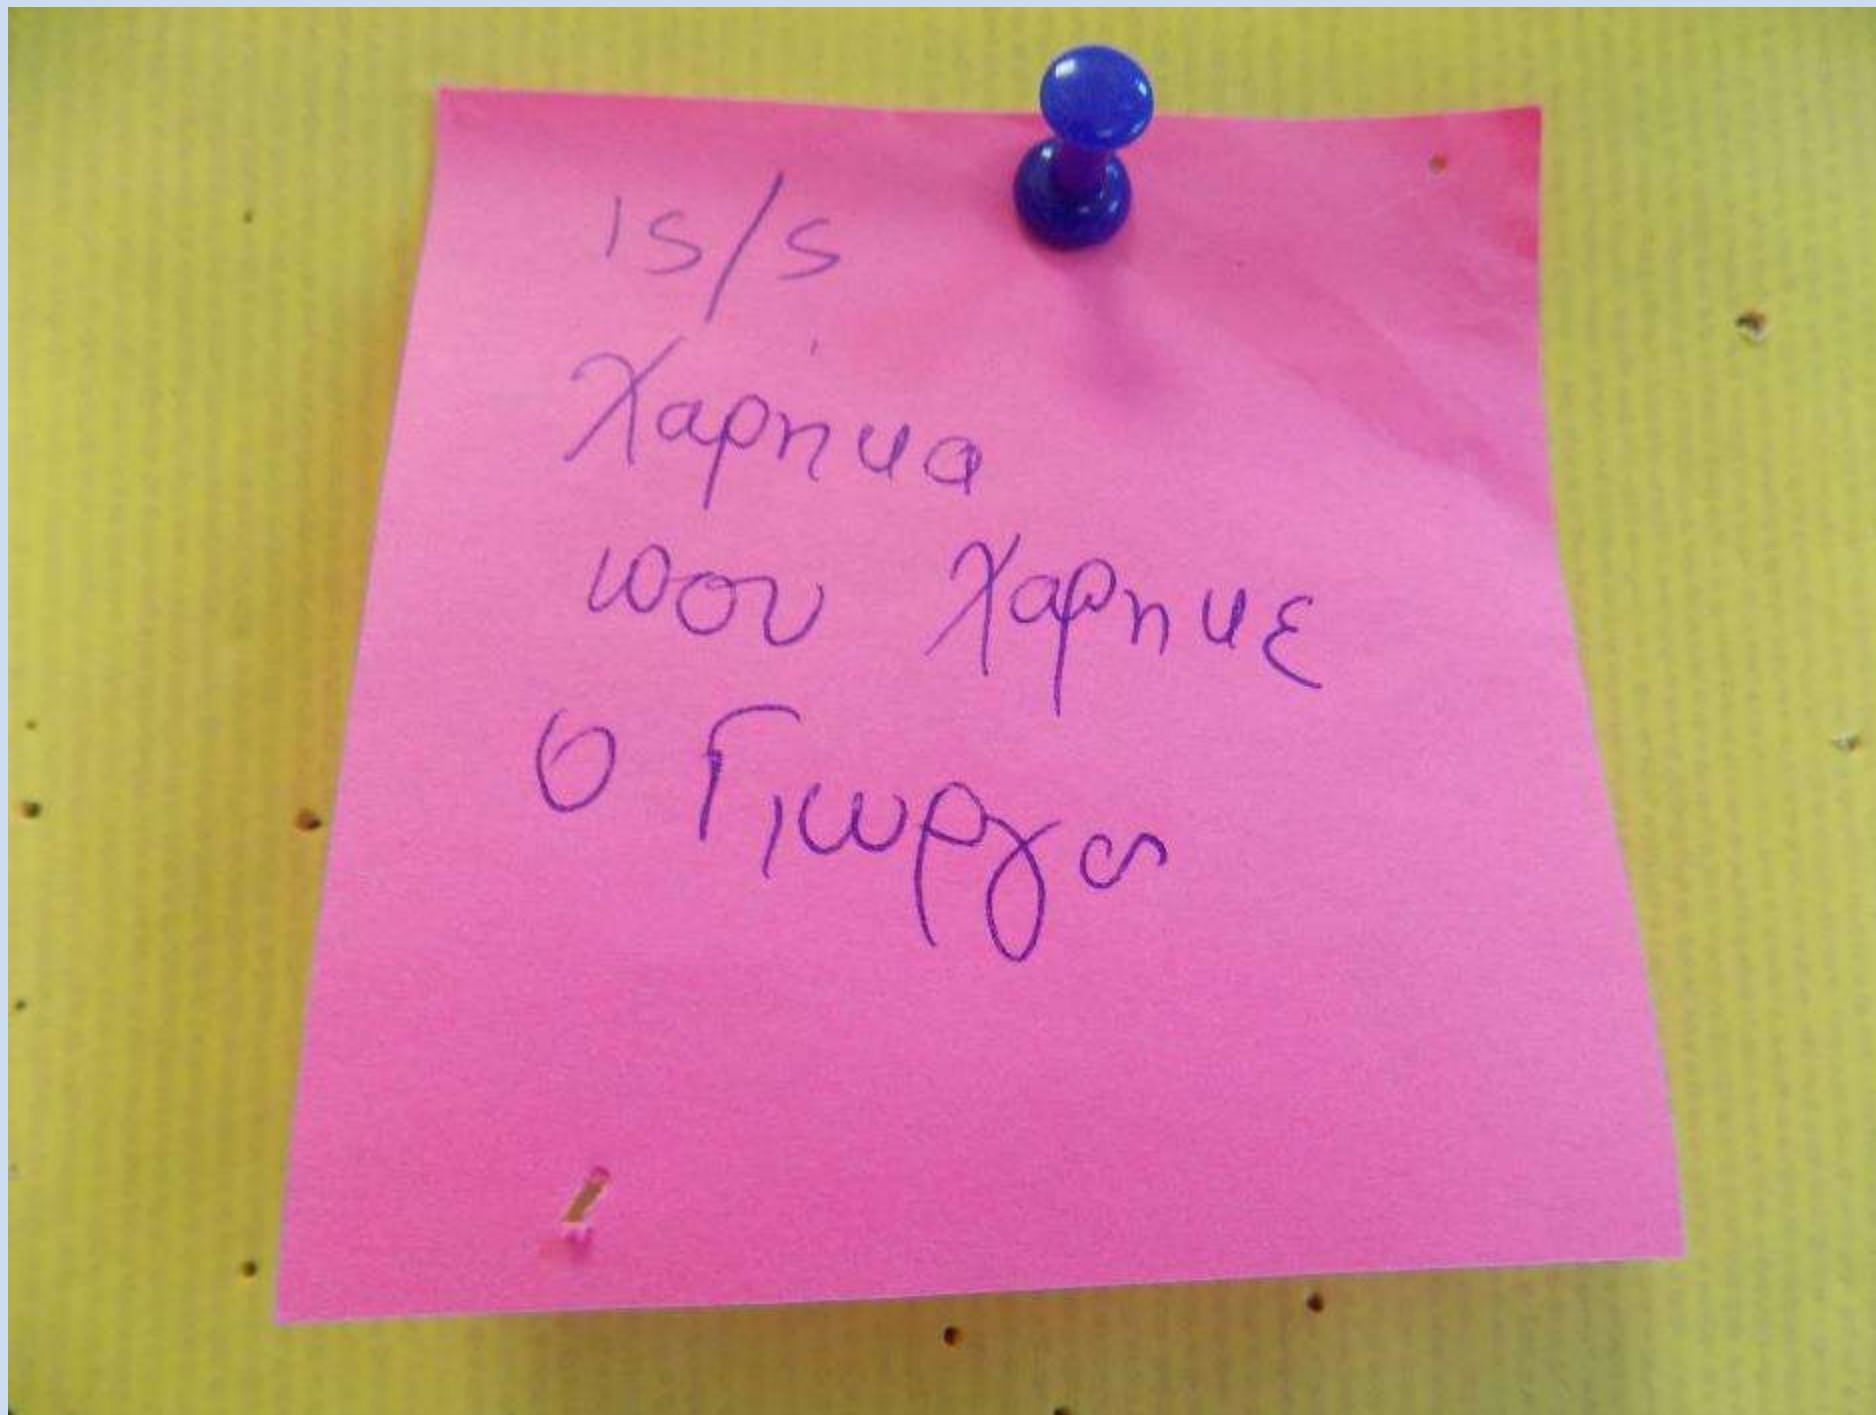 15/5
Χαρηκα
που χαρηκε
ο Γιωργος